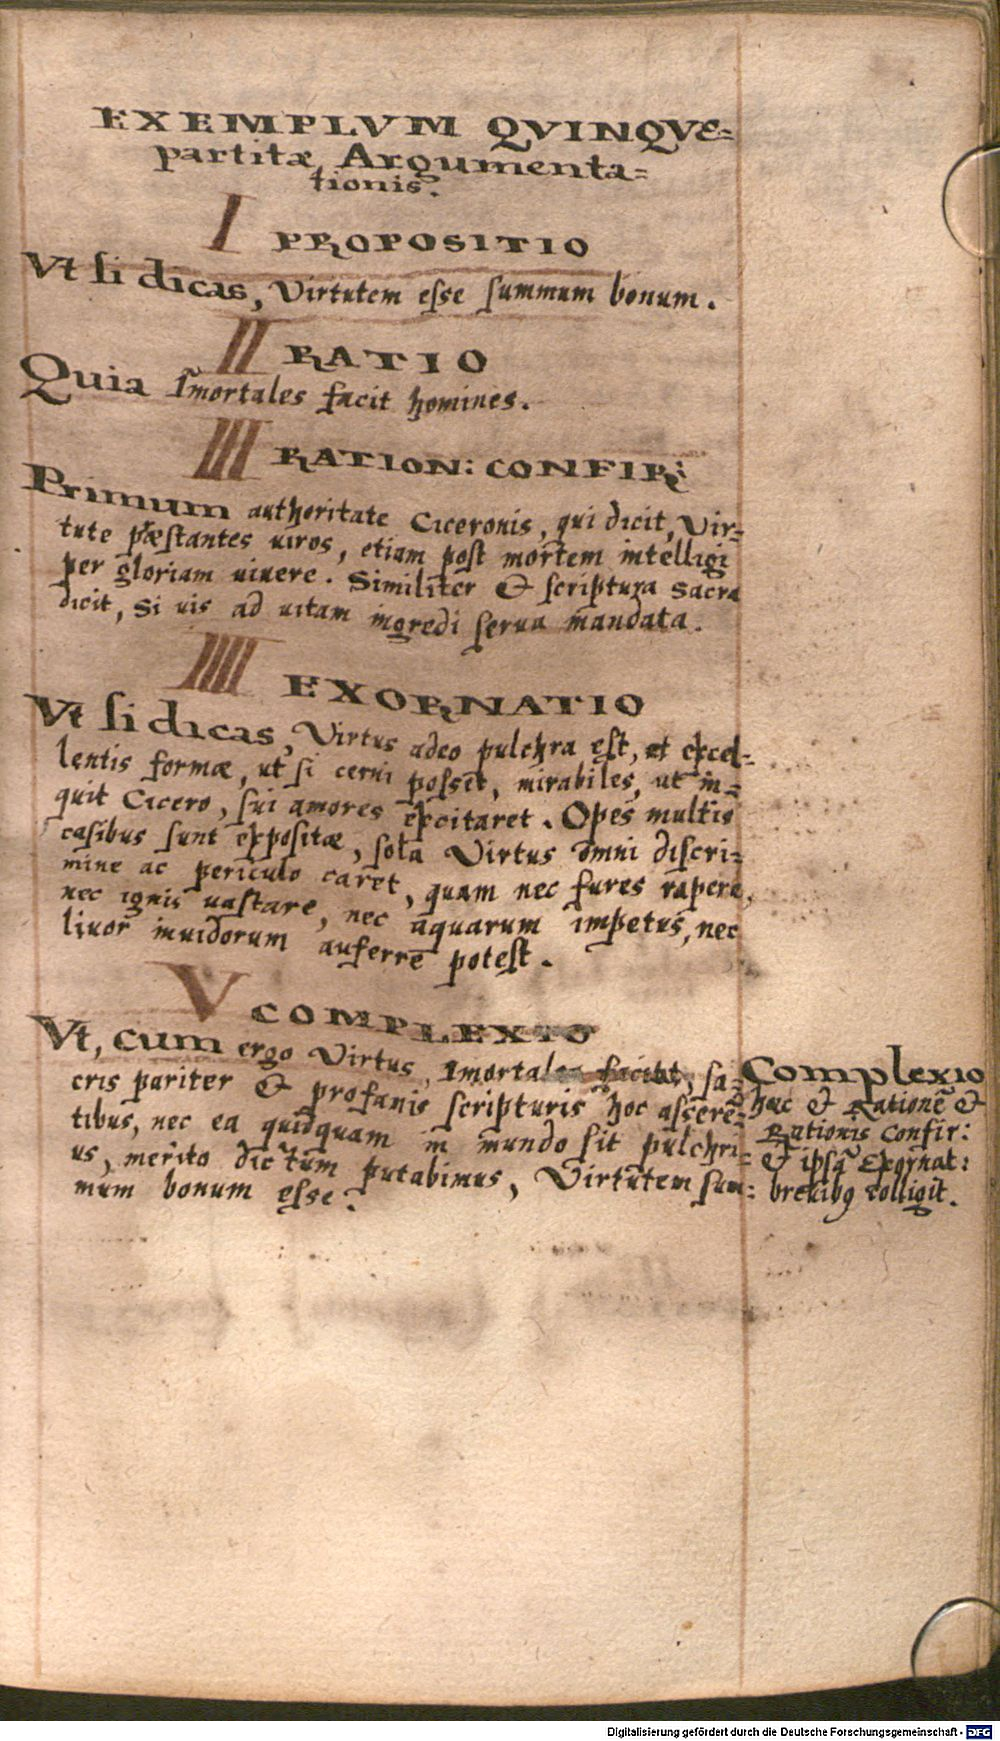 EXEMPLVM QVINQVE=
partitæ Argumenta=
tionis.
I PROPOSITIO
Vt si dicas, Virtutem esse summum bonum.
II RATIO
Quia Im̃ortales facit homines.
III RATION: CONFIR:
Primum authoritate Ciceronis, qui dicit, Vir=
tute præstantes uiros, etiam post mortem intelligi
per gloriam uiuere. Similiter & scriptura Sacra
dicit, Si uis ad uitam ingredi serua mandata.
IIII EXORNATIO
Vt si dicas, Virtus adeo pulchra est, et excel=
lentis formæ, ut si cerni posset, mirabiles, ut in=
quit Cicero, sui amores excitaret. Opes multis
casibus sunt expositæ, sola Virtus omni discri=
mine ac periculo caret, quam nec fures rapere,
nec ignis uastare, nec aquarum impetus, nec
liuor inuidorum auferre potest.
V COMPLEXIO
Vt, cum ergo Virtus, Imortales faciat, sa=
cris pariter & profanis scripturis hoc asseren̄=
tibus, nec ea quidquam in mundo sit pulchri=
us, merito dictum putabimus, Virtutem sum=
mum bonum esse.
Complexio
hæc & Rationē &
Rationis Confir:
& ipsā Exornat:
breuibꝰ colligit.
Digitalisierung gefördert durch die Deutsche Forschungsgemeinschaft - DFG